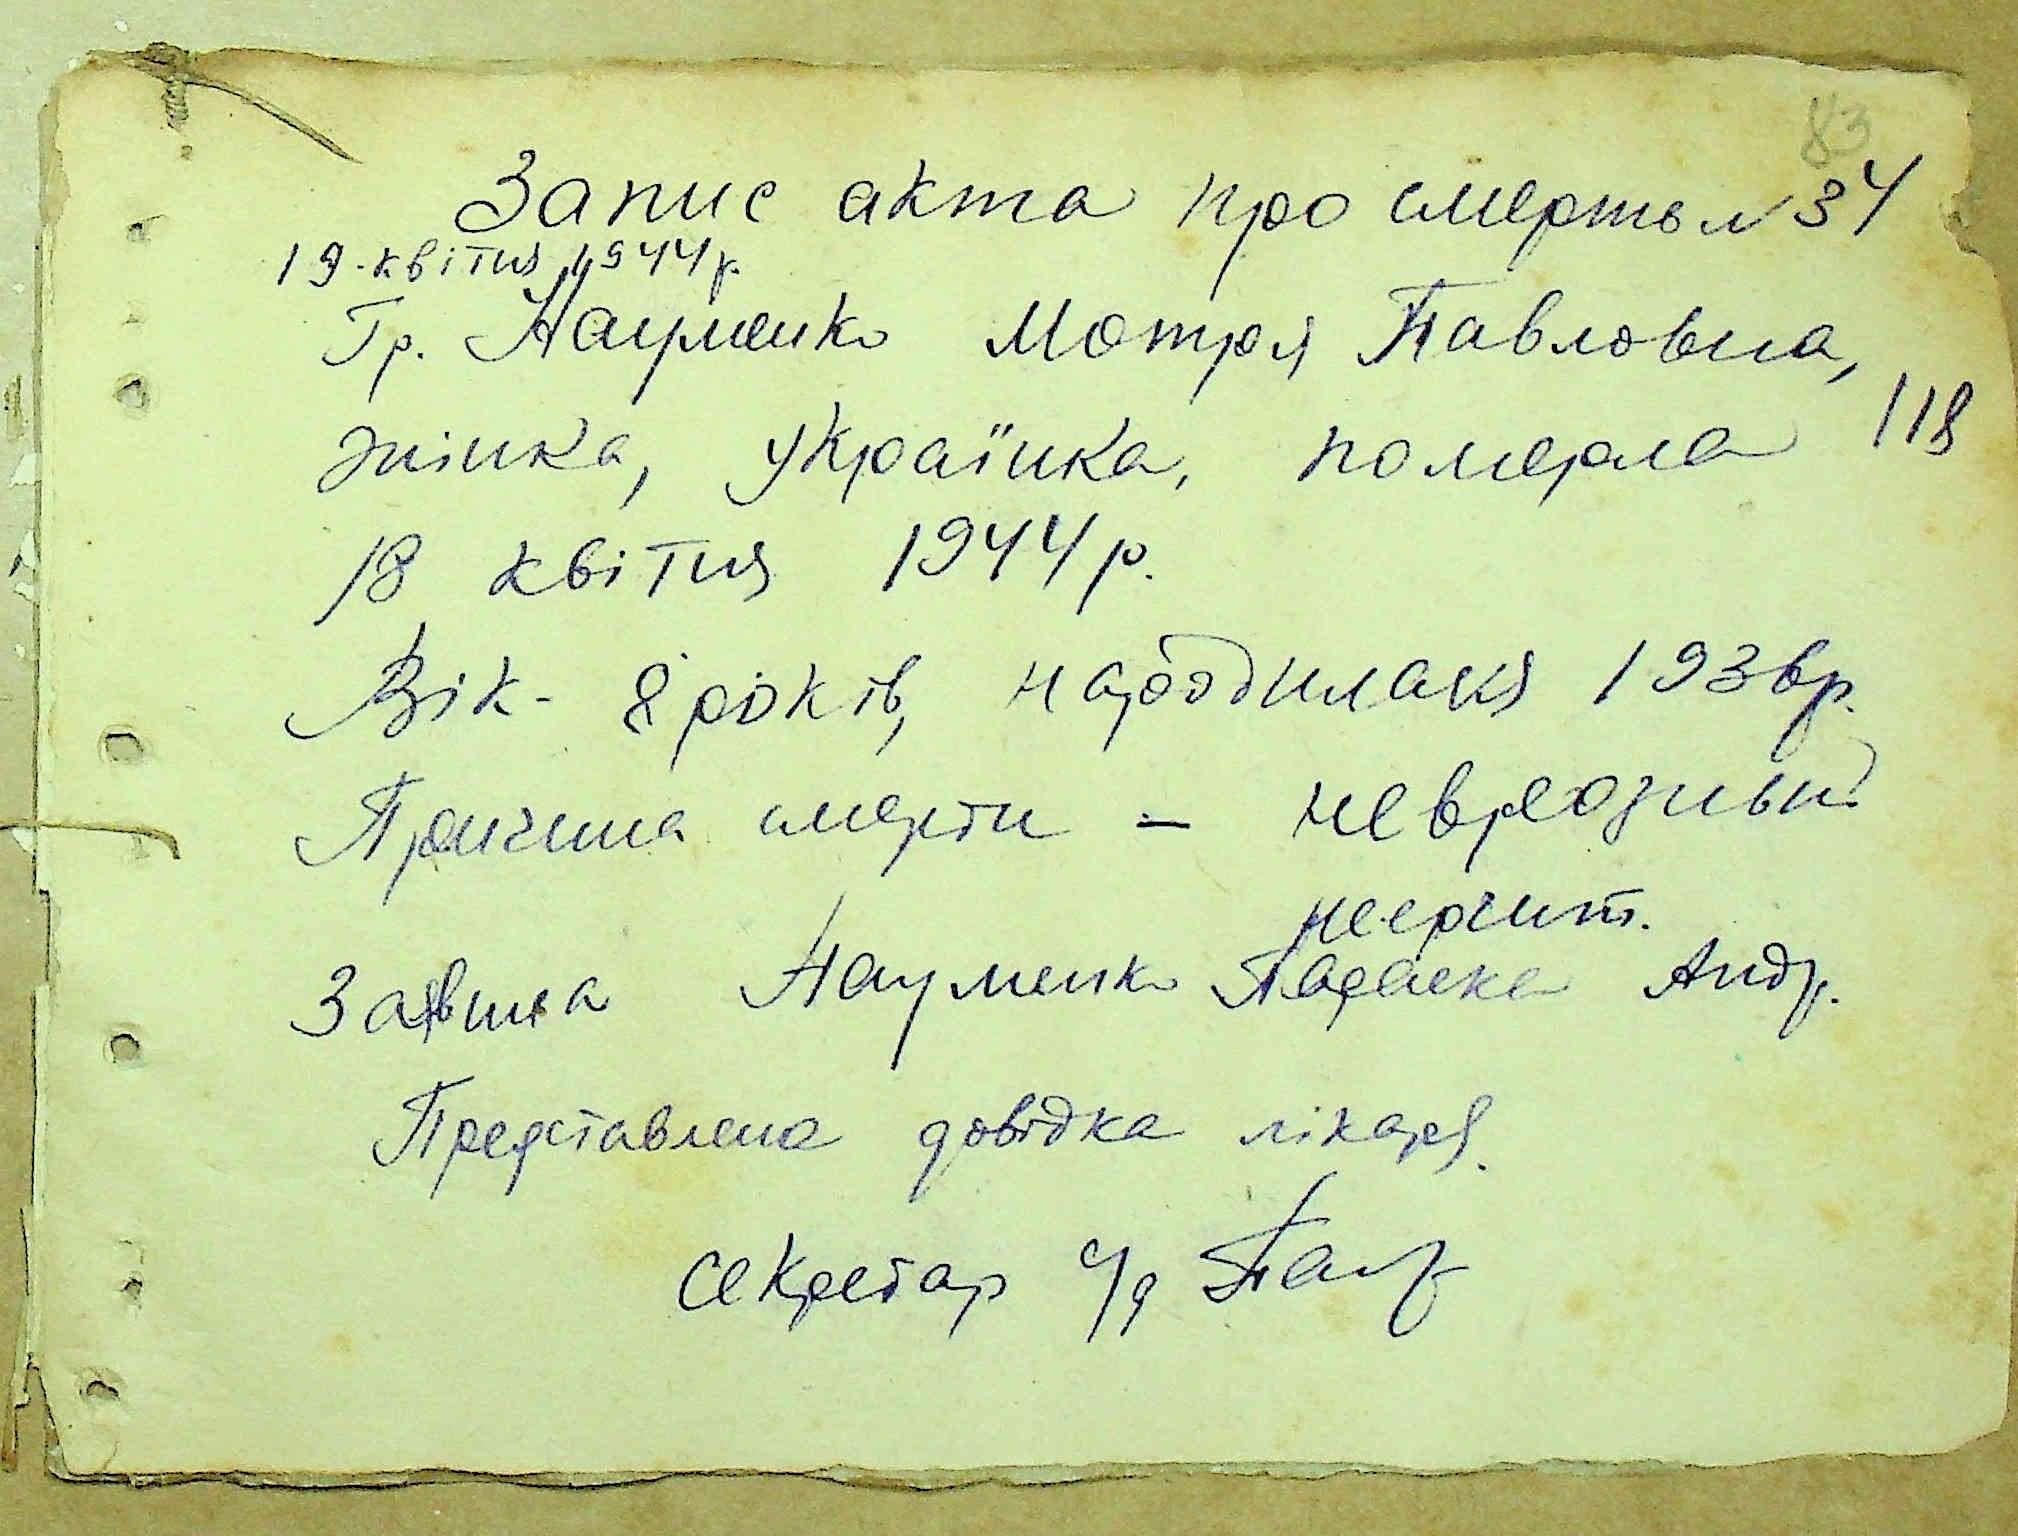 83
Запис акта про смерть N 34
19 квітня 1944 р.
Гр. Науменко Мотря Павловна,
жінка, українка, померла
118
18 квітня 1944 р.
Вік - 8 років, народилася 1936 р.
Причина смерти -
Заявила Науменко Параска Андр.
Представлена довідка лікаря.
Секретар с/р